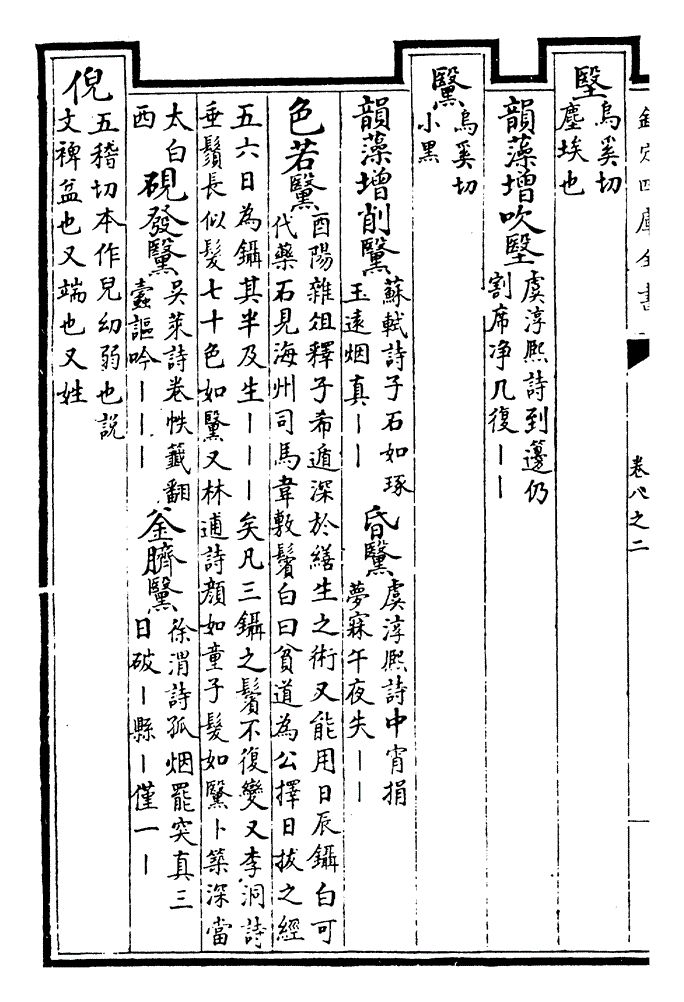 欽定四庫全書
卷八之二
㙠
烏奚切
塵埃也
韻藻增吹㙠
虞淳熙詩到籩仍
割席净几復——
黳
烏奚切
小黑
韻藻增削黳
蘇軾詩子石如琢
玉遠烟真——
昏黳
虞淳熙詩中宵捐
夢寐午夜失——
色若黳
酉陽雜俎釋子希遁深於繕生之術又能用日辰鑷白可
代藥石見海州司馬韋敷鬢白曰貧道為公擇日拔之經
五六日為鑷其半及生———矣凡三鑷之鬢不復變又李洞詩
垂鬚長似髮七十色如黳又林逋詩顔如童子髮如黳卜築深當
太白
西
硯發黳
吳萊詩卷帙籤翻
蠧謳吟———
釜臍黳
徐渭詩孤烟罷突真三
日破—縣—僅一—
倪
五稽切本作兒幼弱也説
文裨益也又端也又姓